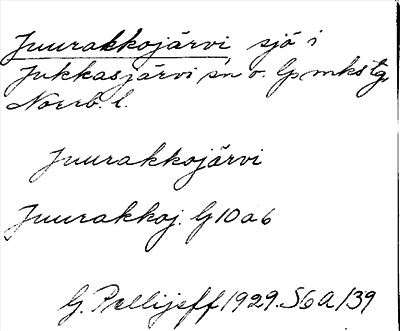 Juurakkojärvi, sjö i
Jukkasjärvi sn o. lpmkstg,
Norrb. l.
Juurakkojärvi
Juurakkoj. G10a6
G. Pellijeff 1929. S6A/39